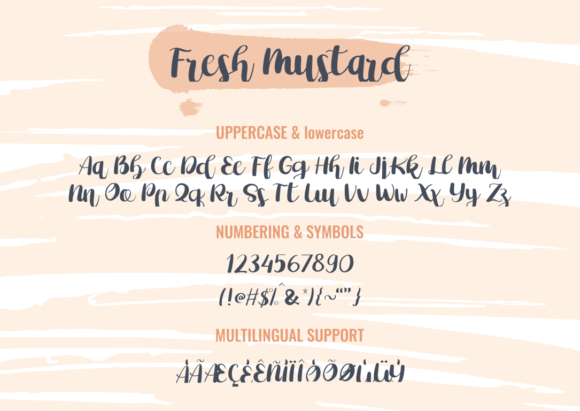 Fresh Mustard
UPPERCASE & lowercase
Aa Bb Cc Dd Ee Ff Gg Hh Ii Jj Kk Ll Mm
Nn Oo Pp Qq Rr Ss Tt Uu Vv Ww Xx Yy Zz
NUMBERING & SYMBOLS
1234567890
(!@#$%^&*){~“”}
MULTILINGUAL SUPPORT